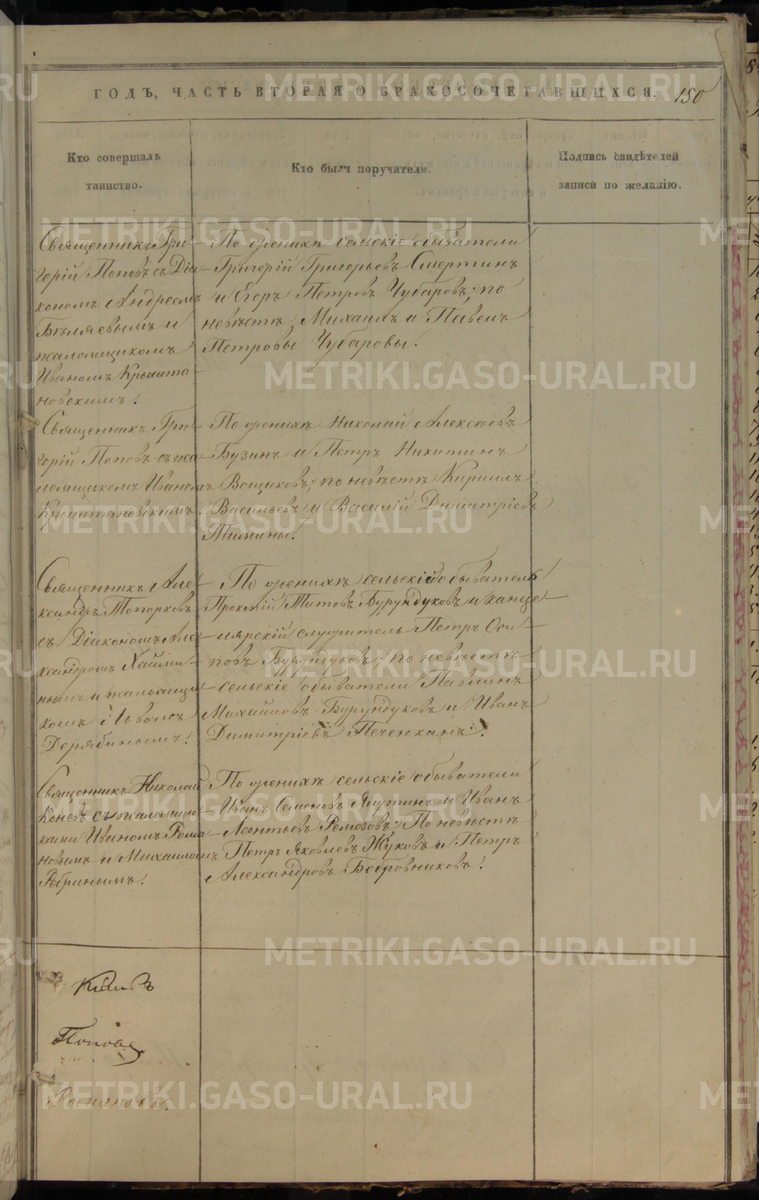 ГОДЪ, ЧАСТЬ ВТОРАЯ О БРАКОСОЧЕТАВШИХСЯ. 150
Кто совершалъ
таинство.
Кто былъ поручатели.
Подпись свидѣтелей
записи по желалію.
Священникъ Гри-
горій Поповъ съ Діа-
кономъ Андреемъ
Бѣляевымъ и
псаломщикомъ
Иваномъ Крышта-
новскимъ.
По женихѣ сельскіе обыватели
Григорій Григорьевъ Смертинъ
и Егоръ Петровъ Чубаровъ; по
невѣстѣ, Михаилъ и Павелъ
Петровы Чубаровы.
Священникъ Гри-
горій Поповъ съ пса-
ломщикомъ Иваномъ
Крыштановскимъ.
По женихѣ Николай Алексѣевъ
Бузинъ и Петръ Никитинъ
Вощиковъ; по невѣстѣ Кириллъ
Васильевъ и Василій Димитріевъ
Тимины.
Священникъ Але-
ксандръ Топорковъ
съ Діакономъ Але-
ксандромъ
нымъ и псаломщи-
комъ
Дерябинымъ.
По женихѣ сельскій обыватель
Прокопій Титовъ Бурундуковъ и канце-
лярскій служитель Петръ Оси-
повъ Бурундуковъ; по невѣстѣ
сельскіе обыватели Павлинъ
Михайловъ Бурундуковъ и Иванъ
Димитріевъ Печенкинъ.
Священникъ Николай
Коневъ съ псаломщи-
ками Иваномъ Рома-
новымъ и Михаиломъ
Рябинымъ.
По женихѣ сельскіе обыватели
Иванъ Семеновъ Яцутинъ и Иванъ
Леонтьевъ Ремезовъ; По невѣстѣ
Петръ Яковлевъ Жуковъ и Петръ
Александровъ Бобровниковъ.
Поповъ
METRIKI.GASO-URAL.RU